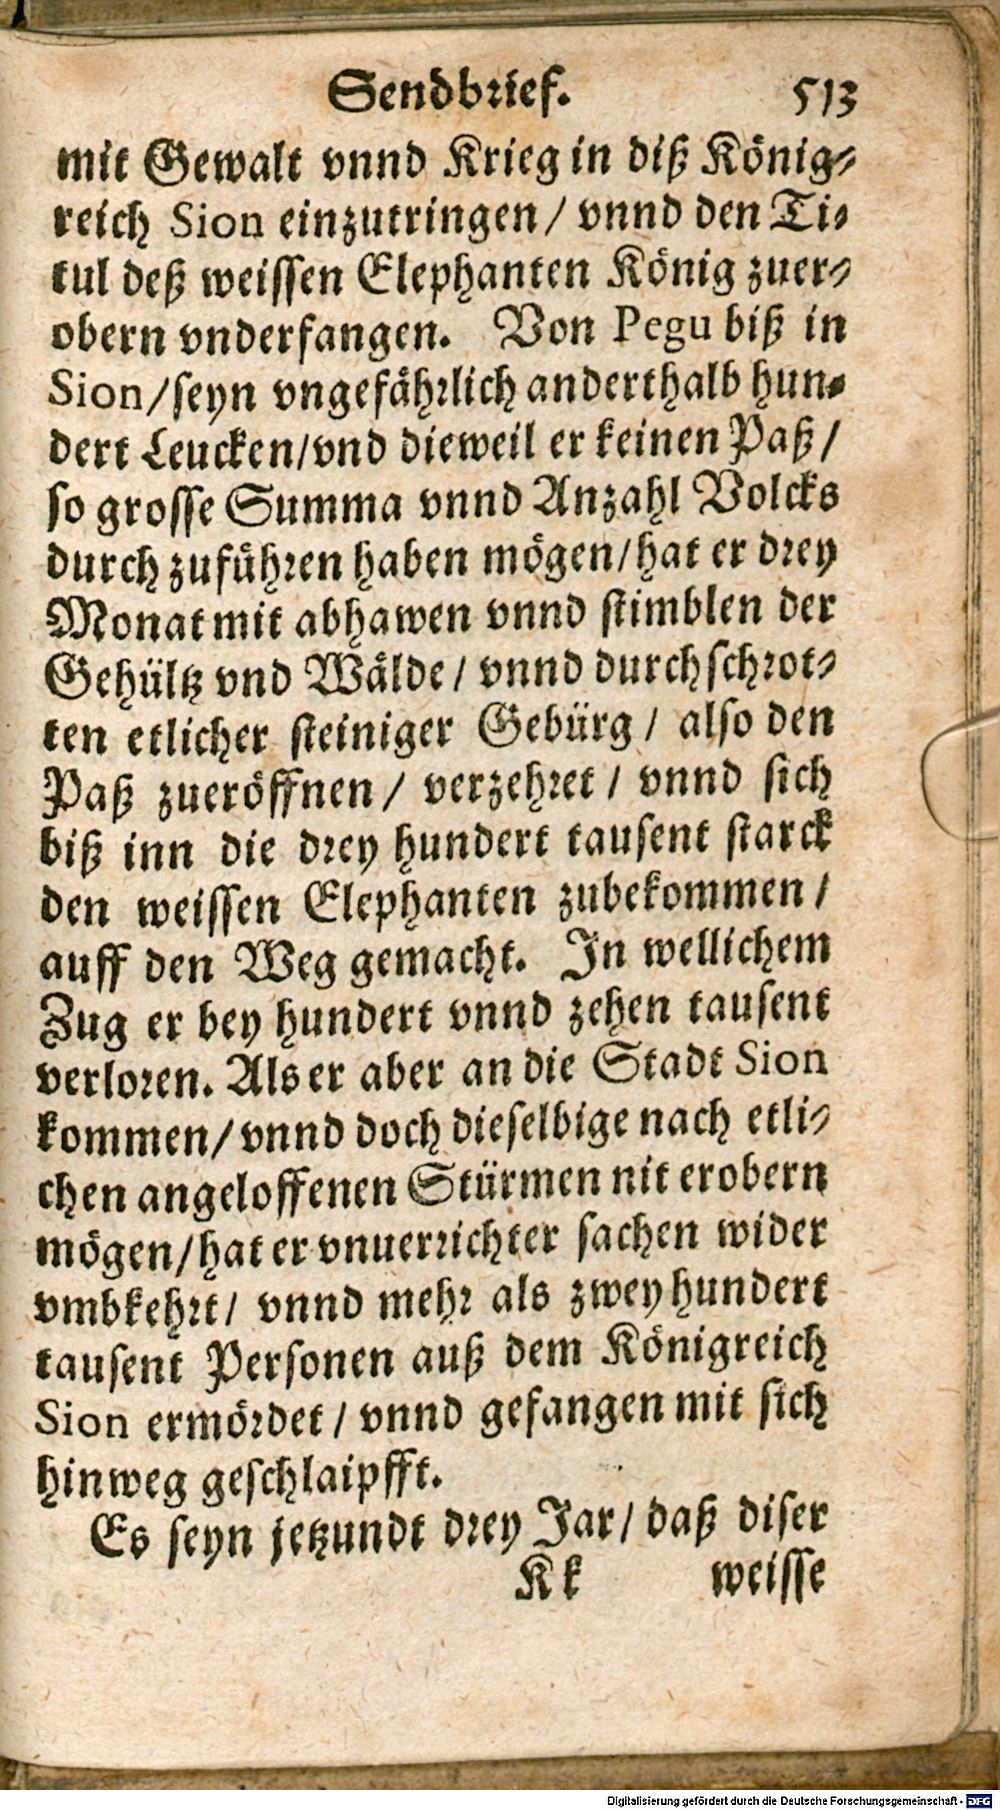 Sendbrief. 513
mit Gewalt vnnd Krieg in diß König-
reich Sion einzutringen / vnnd den Ti-
tul deß weissen Elephanten König zuer-
obern vnderfangen. Von Pegu biß in
Sion / seyn vngefährlich anderthalb hun-
dert Leucken / vnd dieweil er keinen Paß /
so grosse Summa vnnd Anzahl Volcks
durch zuführen haben mögen / hat er drey
Monat mit abhawen vnnd stimblen der
Gehültz vnd Wälde / vnnd durchschrot-
ten etlicher steiniger Gebürg / also den
Paß zueröffnen / verzehret / vnnd sich
biß inn die drey hundert tausent starck
den weissen Elephanten zubekommen /
auff den Weg gemacht. In wellichem
Zug er bey hundert vnnd zehen tausent
verloren. Als er aber an die Stadt Sion
kommen / vnnd doch dieselbige nach etli-
chen angeloffenen Stürmen nit erobern
mögen / hat er vnuerrichter sachen wider
vmbkehrt / vnnd mehr als zwey hundert
tausent Personen auß dem Königreich
Sion ermördet / vnnd gefangen mit sich
hinweg geschlaipfft.
Es seyn jetzundt drey Jar / daß diser
Kk weisse
Digitalisierung gefördert durch die Deutsche Forschungsgemeinschaft - DFG